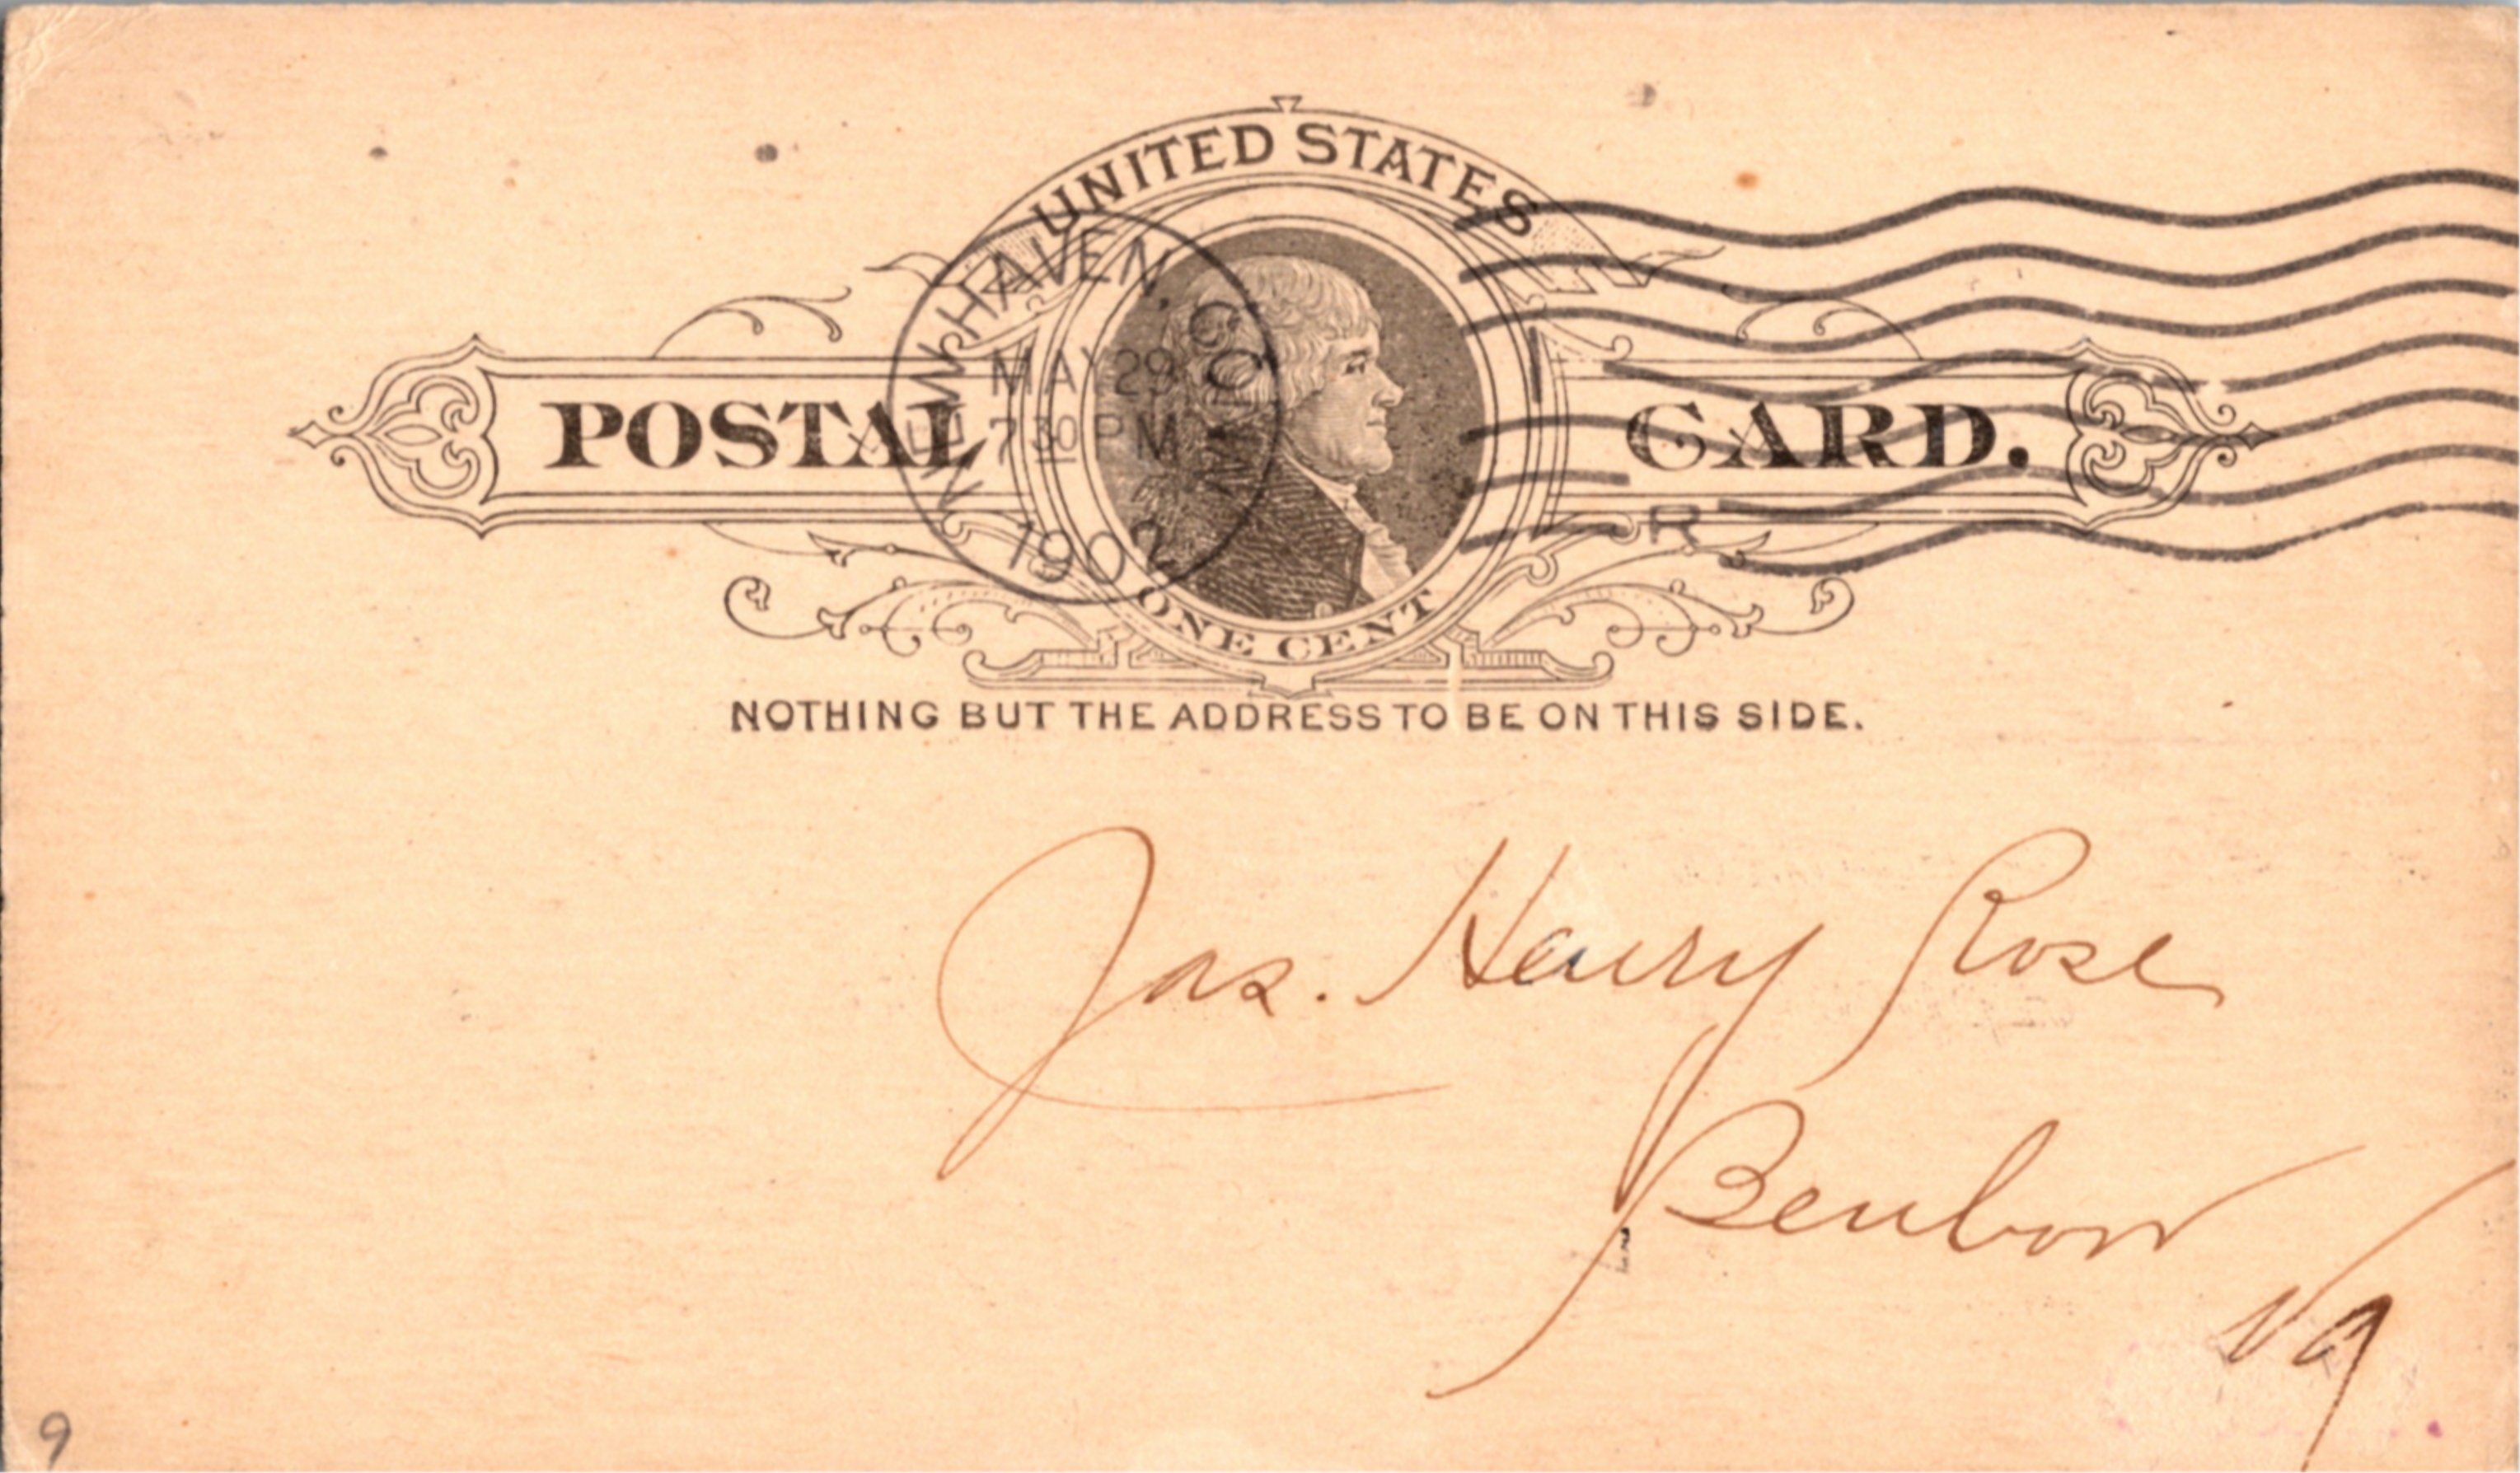 UNITED STATES
POSTAL CARD.
ONE CENT
NEW HAVEN, CONN.
MAY 29
7 30 PM
1902
R
NOTHING BUT THE ADDRESS TO BE ON THIS SIDE.
Jas. Henry Rose
Benbow
Va
9